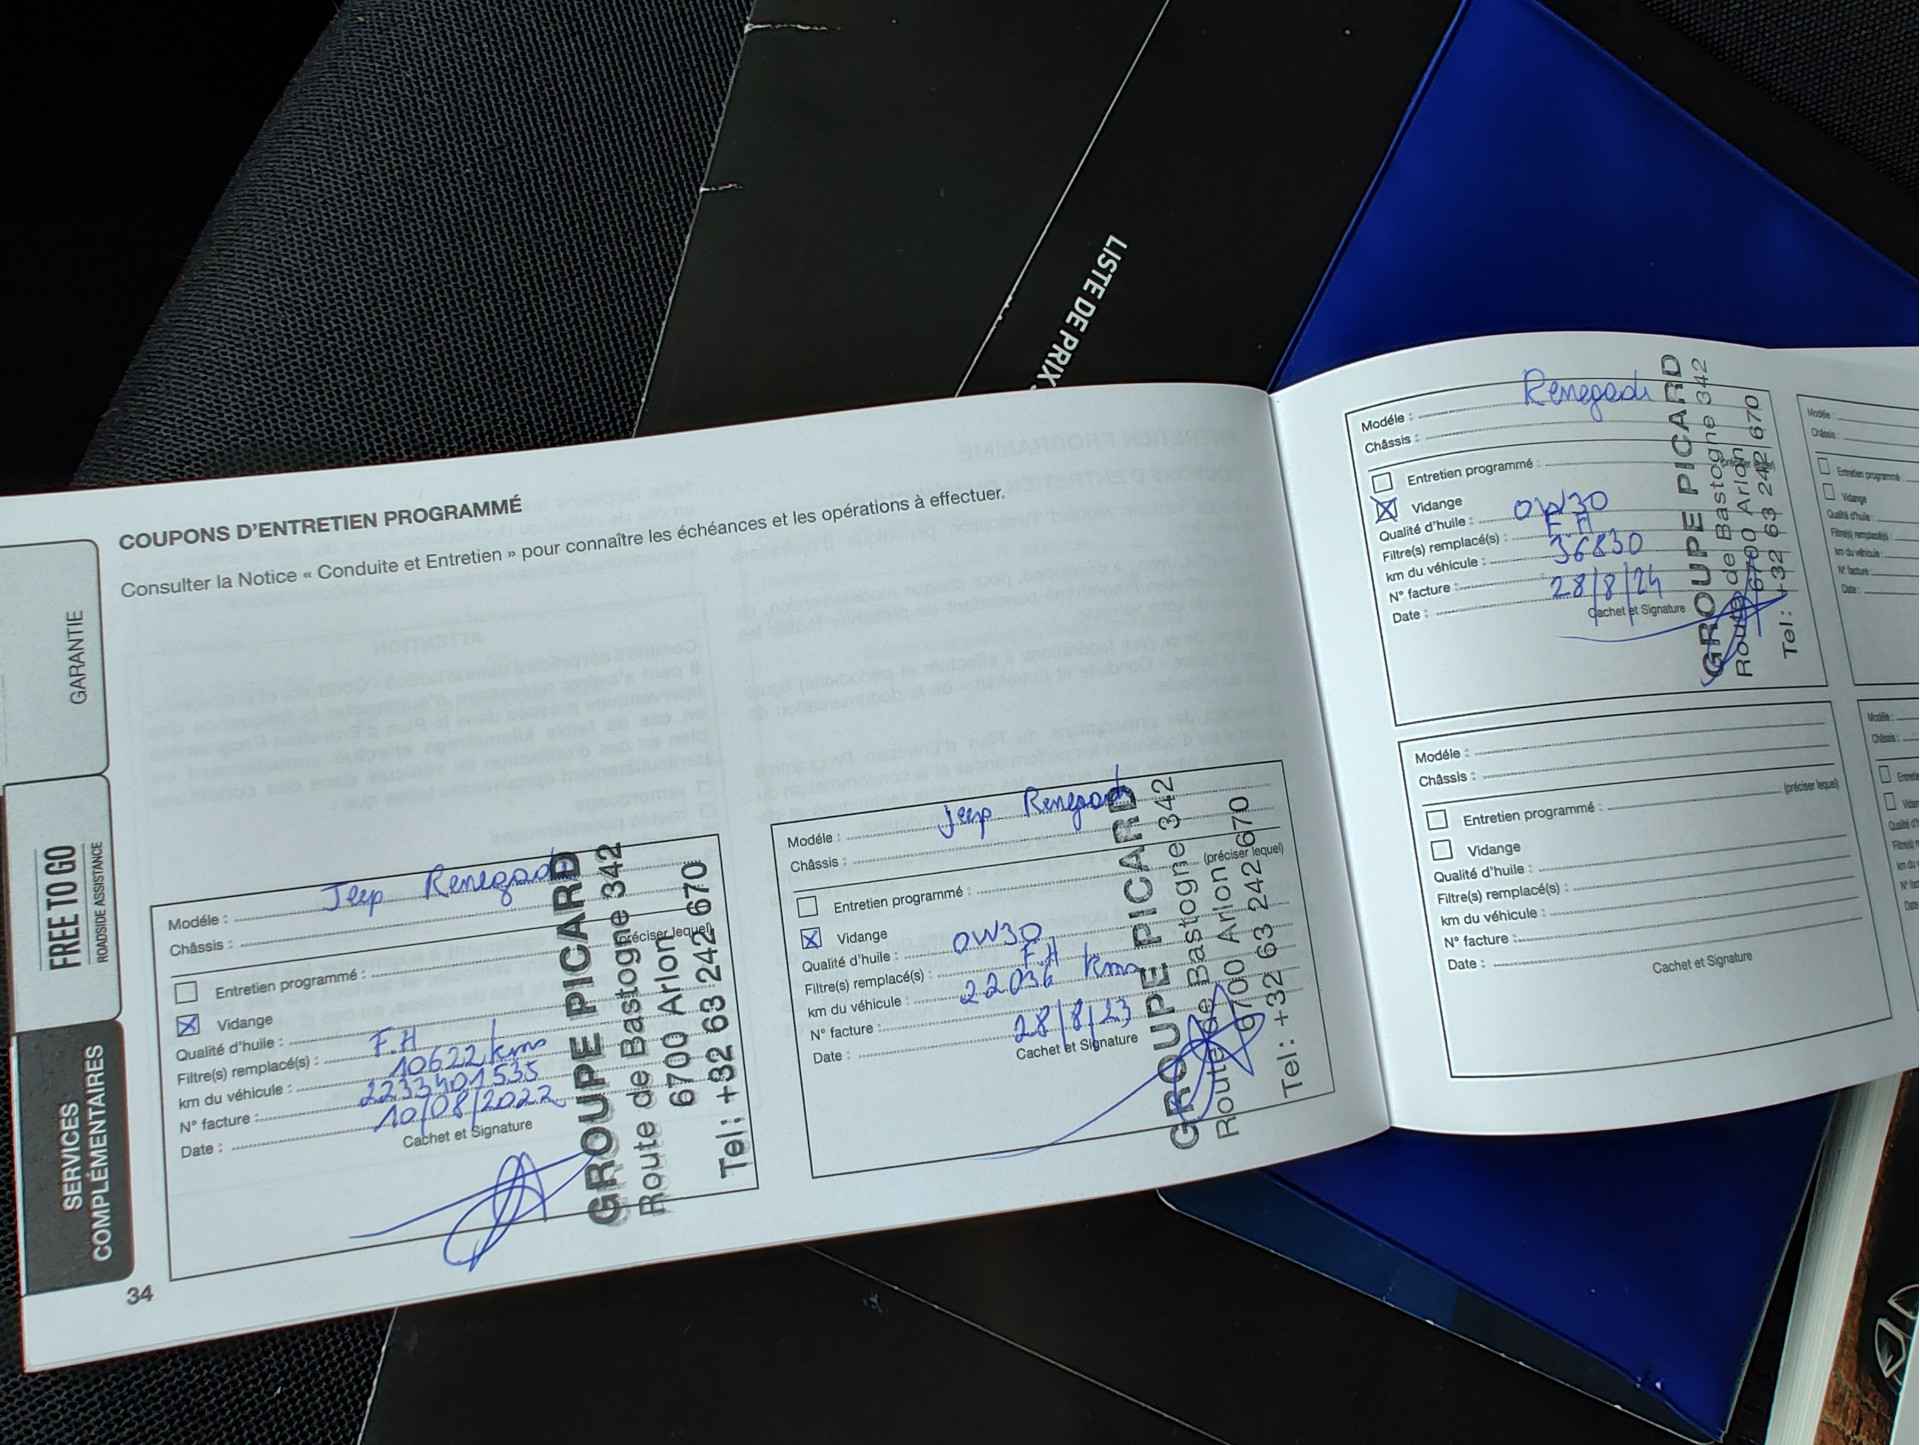 LISTE DE PRIX
GARANTIE
FREE TO GO
ROADSIDE ASSISTANCE
SERVICES
COMPLÉMENTAIRES
COUPONS D'ENTRETIEN PROGRAMMÉ
Consulter la Notice « Conduite et Entretien » pour connaître les échéances et les opérations à effectuer.
Modéle : Jeep Renegade
Châssis :
(préciser lequel)
Entretien programmé :
Vidange
Qualité d'huile :
Filtre(s) remplacé(s) : F.H
km du véhicule : 10622 kms
N° facture : 2233401535
Date : 10/08/2022
Cachet et Signature
GROUPE PICARD
Route de Bastogne 342
6700 Arlon
Tel : +32 63 242 670
34
Modéle : Jeep Renegade
Châssis :
(préciser lequel)
Entretien programmé :
Vidange
Qualité d'huile : 0W30
Filtre(s) remplacé(s) : F.H
km du véhicule : 22036 kms
N° facture :
Date : 28/8/23
Cachet et Signature
GROUPE PICARD
Route de Bastogne 342
6700 Arlon
Tel : +32 63 242 670
Modéle : Renegade
Châssis :
(préciser lequel)
Entretien programmé :
Vidange
Qualité d'huile : 0W30
Filtre(s) remplacé(s) : F.H
km du véhicule : 36830
N° facture :
Date : 28/8/24
Cachet et Signature
GROUPE PICARD
Route de Bastogne 342
6700 Arlon
Tel : +32 63 242 670
Modéle :
Châssis :
(préciser lequel)
Entretien programmé :
Vidange
Qualité d'huile :
Filtre(s) remplacé(s) :
km du véhicule :
N° facture :
Date :
Cachet et Signature
Modéle :
Châssis :
Entretien programmé :
Vidange
Qualité d'huile :
Filtre(s) remplacé(s) :
km du véhicule :
N° facture :
Date :
Modéle :
Châssis :